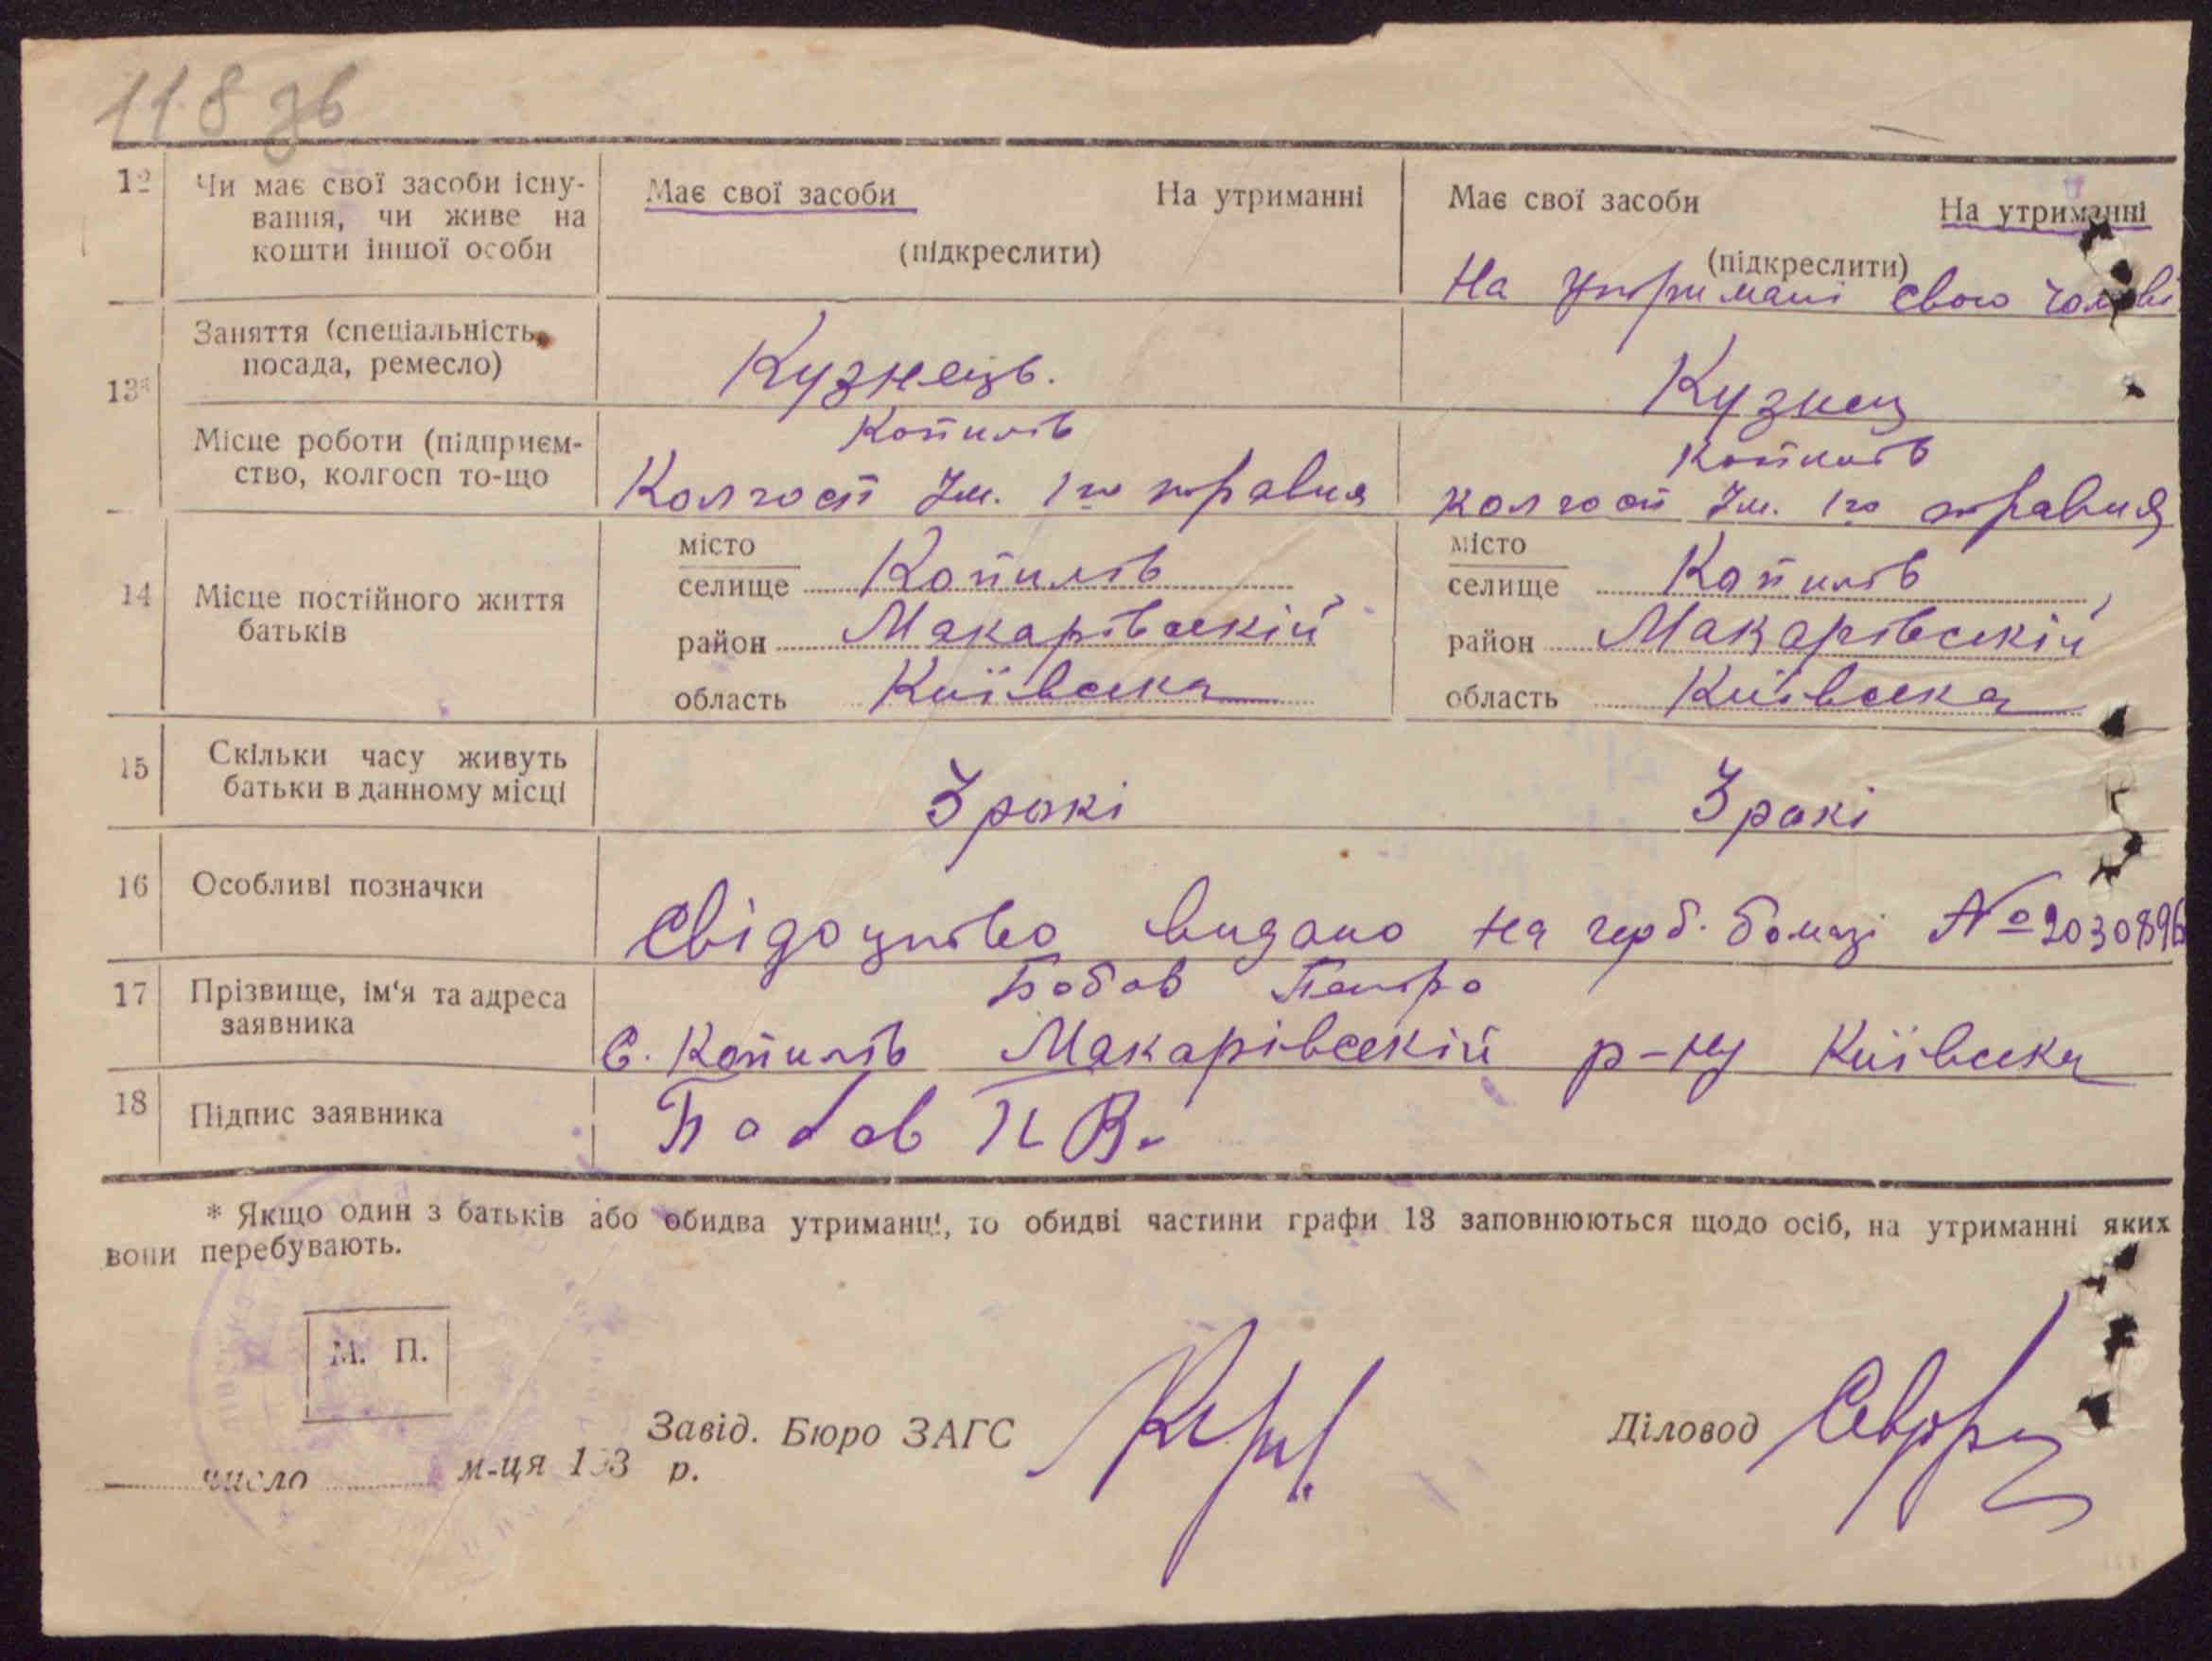 118 зв
12 Чи має свої засоби існу-
вання, чи живе на
кошти іншої особи
Має свої засоби На утриманні
(підкреслити)
Має свої засоби На утриманні
(підкреслити)
На утримані свого
13* Заняття (спеціальність,
посада, ремесло)
Кузнець.
Кузнец
Місце роботи (підприєм-
ство, колгосп то-що
Копилів
Колгосп Ім. 1го травня
Копилів
колгосп Ім. 1го травня
14 Місце постійного життя
батьків
місто
селище Копилів,
район Макарівский
область Київська
місто
селище Копилів,
район Макарівскій
область Київська
15 Скільки часу живуть
батьки в данному місці
3 рокі 3 рокі
16 Особливі позначки
Свідоцтво видано на герб. бомазі № 2030896
17 Прізвище, ім'я та адреса
заявника
Бобов Петро
С. Копилів Макарівскій р-ну Київська
18 Підпис заявника
Бобов П В.
* Якщо один з батьків або обидва утриманці, то обидві частини графи 13 заповнюються щодо осіб, на утриманні яких
вони перебувають.
М. П.
число м-ця 193 р.
Завід. Бюро ЗАГС
Діловод